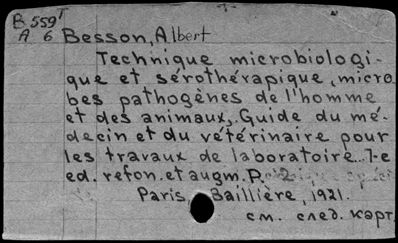 B 559 T
A 6 Besson, Albert
Technique microbiologi-
que et sérothérapique, micro
bes pathogènes de l'homme
et des animaux. Guide du mé-
decin et du vétérinaire pour
les travaux de laboratoire.. 7-e
ed. refon. et augm. P.
Paris, Baillière, 1921.
см. след. карт.